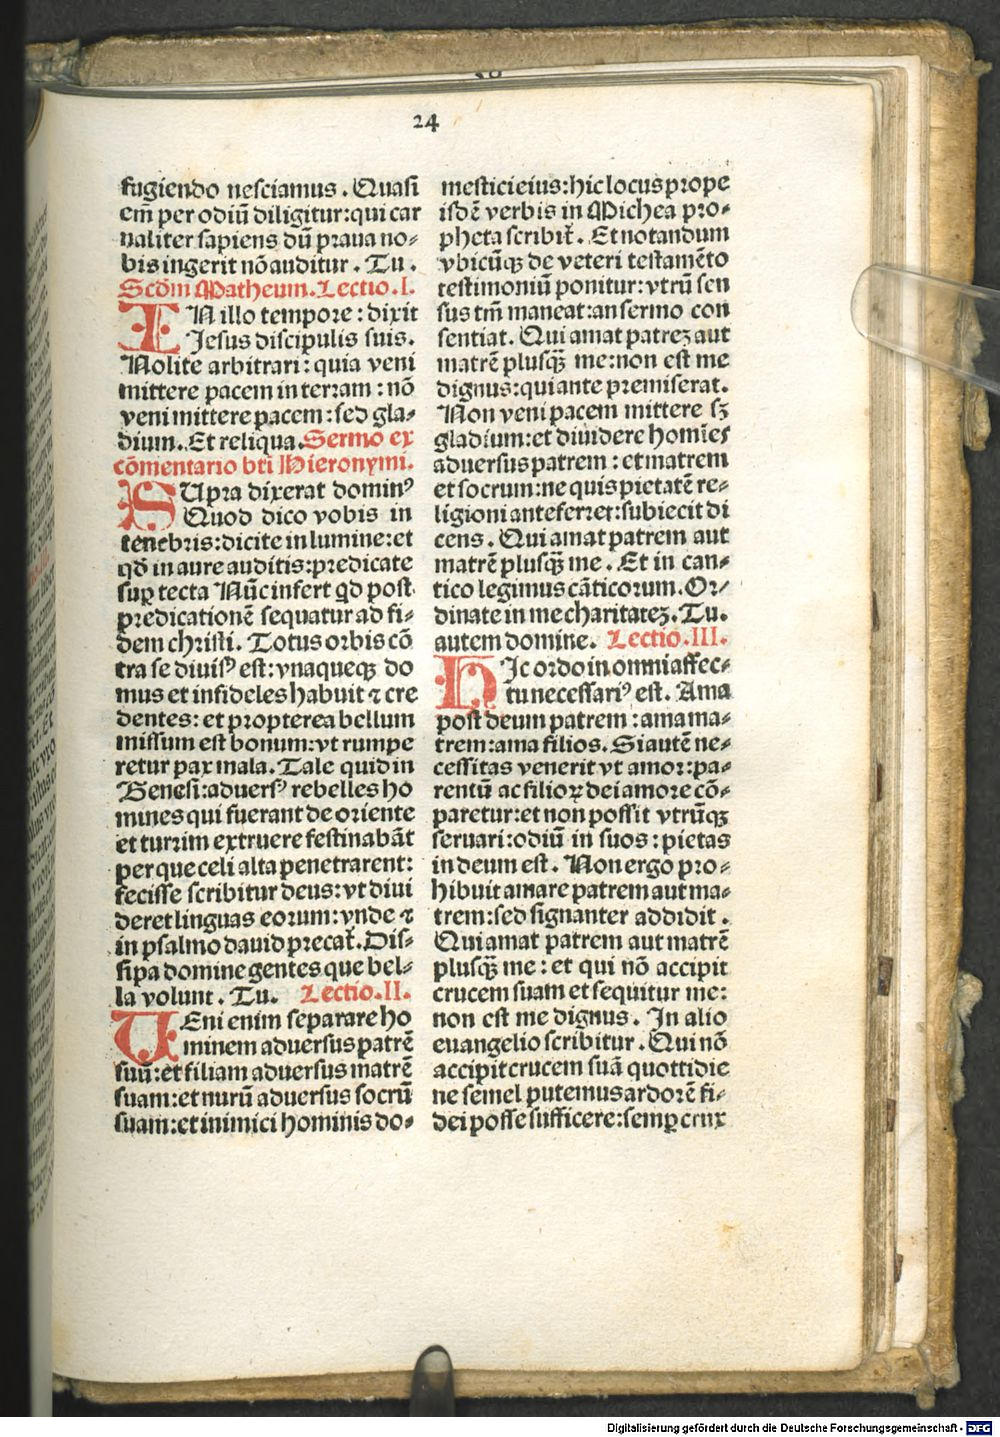 24
fugiendo nesciamus. Quasi
em̄ per odiū diligitur: qui car
naliter sapiens dū praua no⸗
bis ingerit nō auditur. Tu.
Scd̄m Matheum. Lectio. I.
IN illo tempore: dixit
Jesus discipulis suis.
Nolite arbitrari: quia veni
mittere pacem in terram: nō
veni mittere pacem: sed gla⸗
dium. Et reliqua. Sermo ex
cōmentario bt̄i Hieronymi.
SUpra dixerat dominꝰ
Quod dico vobis in
tenebris: dicite in lumine: et
qd̄ in aure auditis: predicate
suꝑ tecta Nūc infert qd̄ post
predicationē sequatur ad fi⸗
dem christi. Totus orbis cō
tra se diuisꝰ est: vnaqueqꝫ do
mus et infideles habuit ⁊ cre
dentes: et propterea bellum
missum est bonum: vt rumpe
retur pax mala. Tale quid in
Genesi: aduersꝰ rebelles ho
mines qui fuerant de oriente
et turrim extruere festinabāt
per que celi alta penetrarent:
fecisse scribitur deus: vt diui
deret linguas eorum: vnde ⁊
in psalmo dauid precat̄. Dis⸗
sipa domine gentes que bel⸗
la volunt. Tu. Lectio. II.
UEni enim separare ho
minem aduersus patrē
suū: et filiam aduersus matrē
suam: et nurū aduersus socrū
suam: et inimici hominis do⸗
mestici eius: hic locus prope
isdē verbis in Michea pro⸗
pheta scribit̄. Et notandum
vbicūqꝫ de veteri testamēto
testimoniū ponitur: vtrū sen
sus tm̄ maneat: an sermo con
sentiat. Qui amat patreꝫ aut
matrē plusqꝫ̄ me: non est me
dignus: qui ante premiserat.
Non veni pacem mittere sꝫ
gladium: et diuidere homīes
aduersus patrem: et matrem
et socrum: ne quis pietatē re⸗
ligioni anteferret: subiecit di
cens. Qui amat patrem aut
matrē plusqꝫ̄ me. Et in can⸗
tico legimus cāticorum. Or⸗
dinate in me charitateꝫ. Tu.
autem domine. Lectio. III.
HIc ordo in omni affec⸗
tu necessariꝰ est. Ama
post deum patrem: ama ma⸗
trem: ama filios. Si autē ne⸗
cessitas venerit vt amor: pa⸗
rentū ac filioꝝ dei amore cō⸗
paretur: et non possit vtrūqꝫ
seruari: odiū in suos: pietas
in deum est. Non ergo pro⸗
hibuit amare patrem aut ma⸗
trem: sed signanter addidit.
Qui amat patrem aut matrē
plusqꝫ̄ me: et qui nō accipit
crucem suam et sequitur me:
non est me dignus. In alio
euangelio scribitur. Qui nō
accipit crucem suā quottidie
ne semel putemus ardorē fi⸗
dei posse sufficere: semꝑ crux
Digitalisierung gefördert durch die Deutsche Forschungsgemeinschaft - DFG